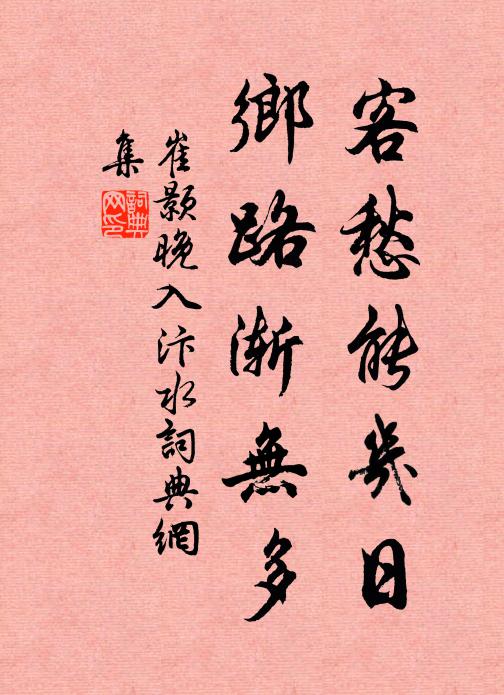 客愁能幾日
鄉路漸無多
崔顥晚入汴水詞典網
集
詞典
網印